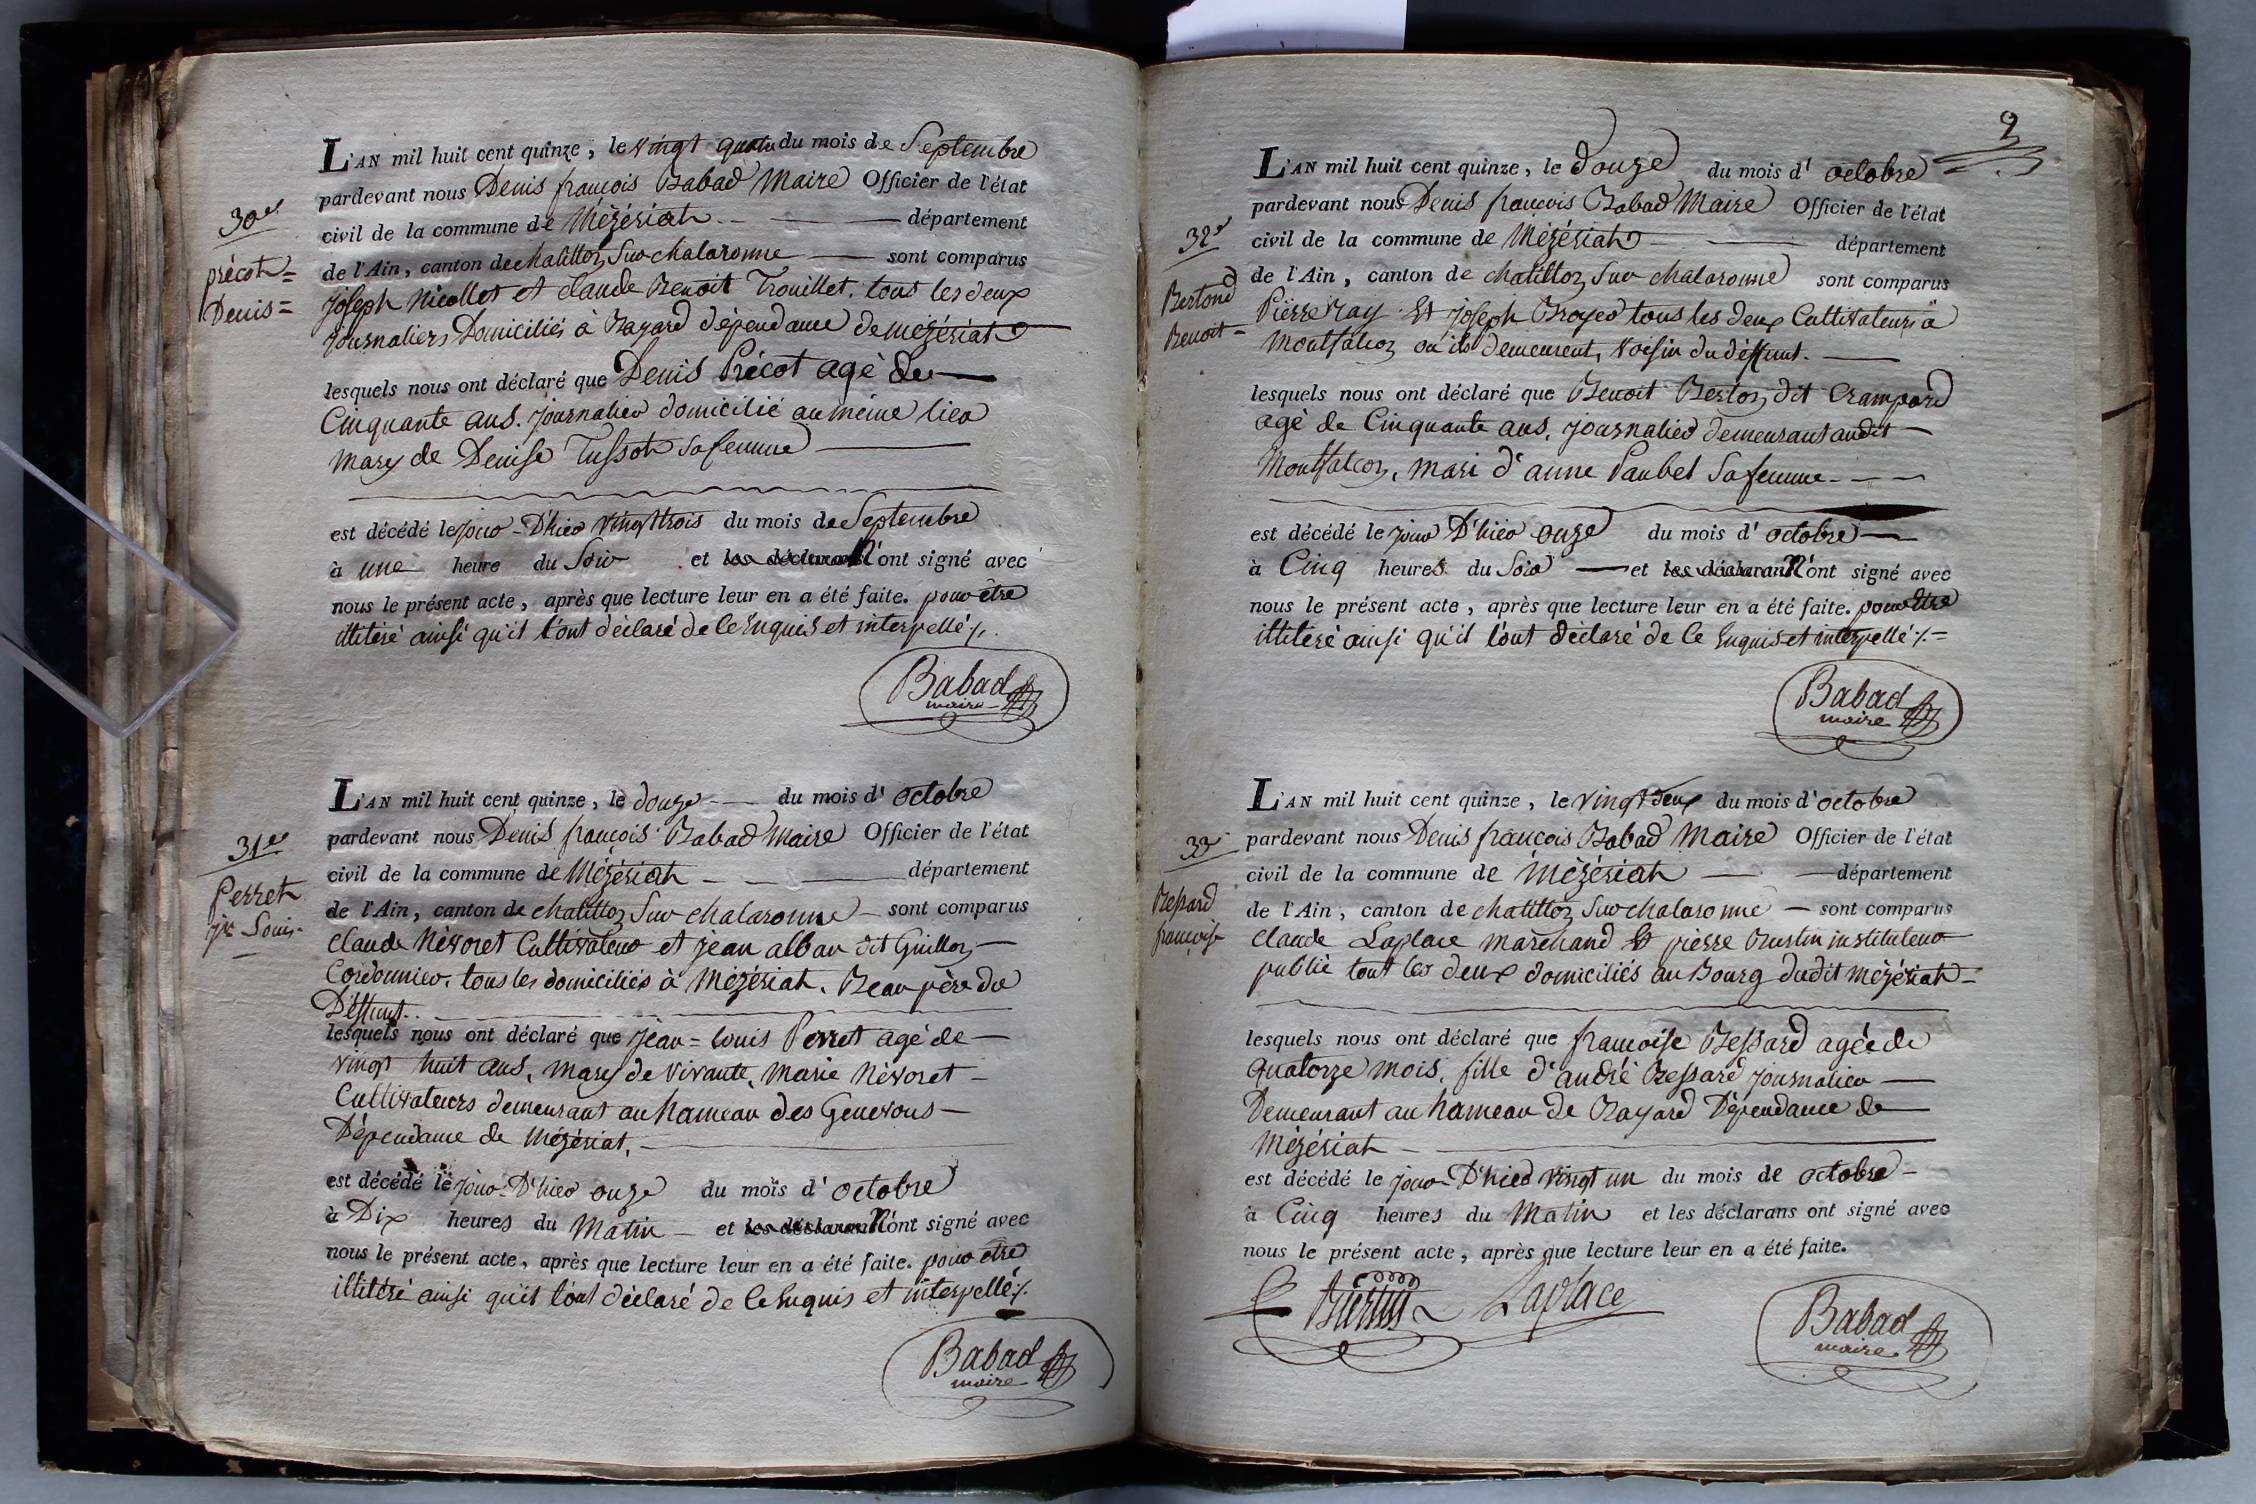 30e
précoh =
Denis =
L'AN mil huit cent quinze, le vingt quatre du mois de Septembre
pardevant nous Denis françois Babad Maire Officier de l'état
civil de la commune de Mézériah département
de l'Ain, canton de chatillon Sur chalaronne sont comparus
joseph Nicollet et claude Benoit Trouillet. tous les deux
journaliers Domiciliés à Bayard dépendance de mézériat
lesquels nous ont déclaré que Denis Précot agé de
Cinquante ans. journalier domicilié au même lieu
mary de Denise Tussoh sa femme
est décédé le jour D'hier vingt trois du mois de Septembre
à une heure du Soir et les déclarans N'ont signé avec
nous le présent acte, après que lecture leur en a été faite. pour être
illitéré ainsi qu'il l'ont déclaré de ce Enquis et interpellé ./.
Babad
maire
31e
Perret
jn Louis
L'AN mil huit cent quinze, le douze du mois d' octobre
pardevant nous Denis françois Babad Maire Officier de l'état
civil de la commune de Mézériah département
de l'Ain, canton de chatillon Sur chalaronne sont comparus
claude Névoret Cultivateur et jean alban dit Guillon
Cordonnier. tous les domiciliés à Mézériah. Beau père du
Déffunt.
lesquels nous ont déclaré que jean = louis Perret agé de
vingt huit ans, mary de vivante, Marie Névoret
Cultivateurs demeurant au hameau des Genevous
Dépendame de Mézériat,
est décédé le jour D'hier onze du mois d' octobre
à Dix heures du Matin et les déclarans N'ont signé avec
nous le présent acte, après que lecture leur en a été faite. pour être
illitéré ainsi qu'il l'ont déclaré de ce Enquis et interpellé ./.
Babad
maire
9
32e
Bertond
Benoit =
L'AN mil huit cent quinze, le Douze du mois d' octobre
pardevant nous Denis françois Babad Maire Officier de l'état
civil de la commune de Mézériah département
de l'Ain, canton de chatillon Sur chalaronne sont comparus
Pierre ray Et joseph Broyer tous les deux Cultivateurs à
Montfalcon ou ils demeurent, voisin du déffunt.
lesquels nous ont déclaré que Benoit Berton dit Crampard
agé de Cinquante ans, journalier demeurant audit
Montfalcon, mari d'anne Paubel Sa femme
est décédé le jour D'hier onze du mois d' octobre
à Cinq heures du Soir et les déclarans N'ont signé avec
nous le présent acte, après que lecture leur en a été faite. pour être
illitéré ainsi qu'il l'ont déclaré de ce Enquis et interpellé ./. =
Babad
maire
33e
Bessard
françoise
L'AN mil huit cent quinze, le vingt deux du mois d' octobre
pardevant nous Denis françois Babad Maire Officier de l'état
civil de la commune de Mézériah département
de l'Ain, canton de chatillon Sur chalaronne sont comparus
claude Laplace marchand Et pierre Bustin instituteur
public tout les deux domiciliés au Bourg dudit Mézériah
lesquels nous ont déclaré que francoise Bessard agée de
quatorze mois, fille d'andré Bessard journalier
Demeurant au hameau de Bayard Dépendance de
Mézériah
est décédé le jour D'hier vingt un du mois de octobre
à Cinq heures du Matin et les déclarans ont signé avec
nous le présent acte, après que lecture leur en a été faite.
Laplace
Babad
maire